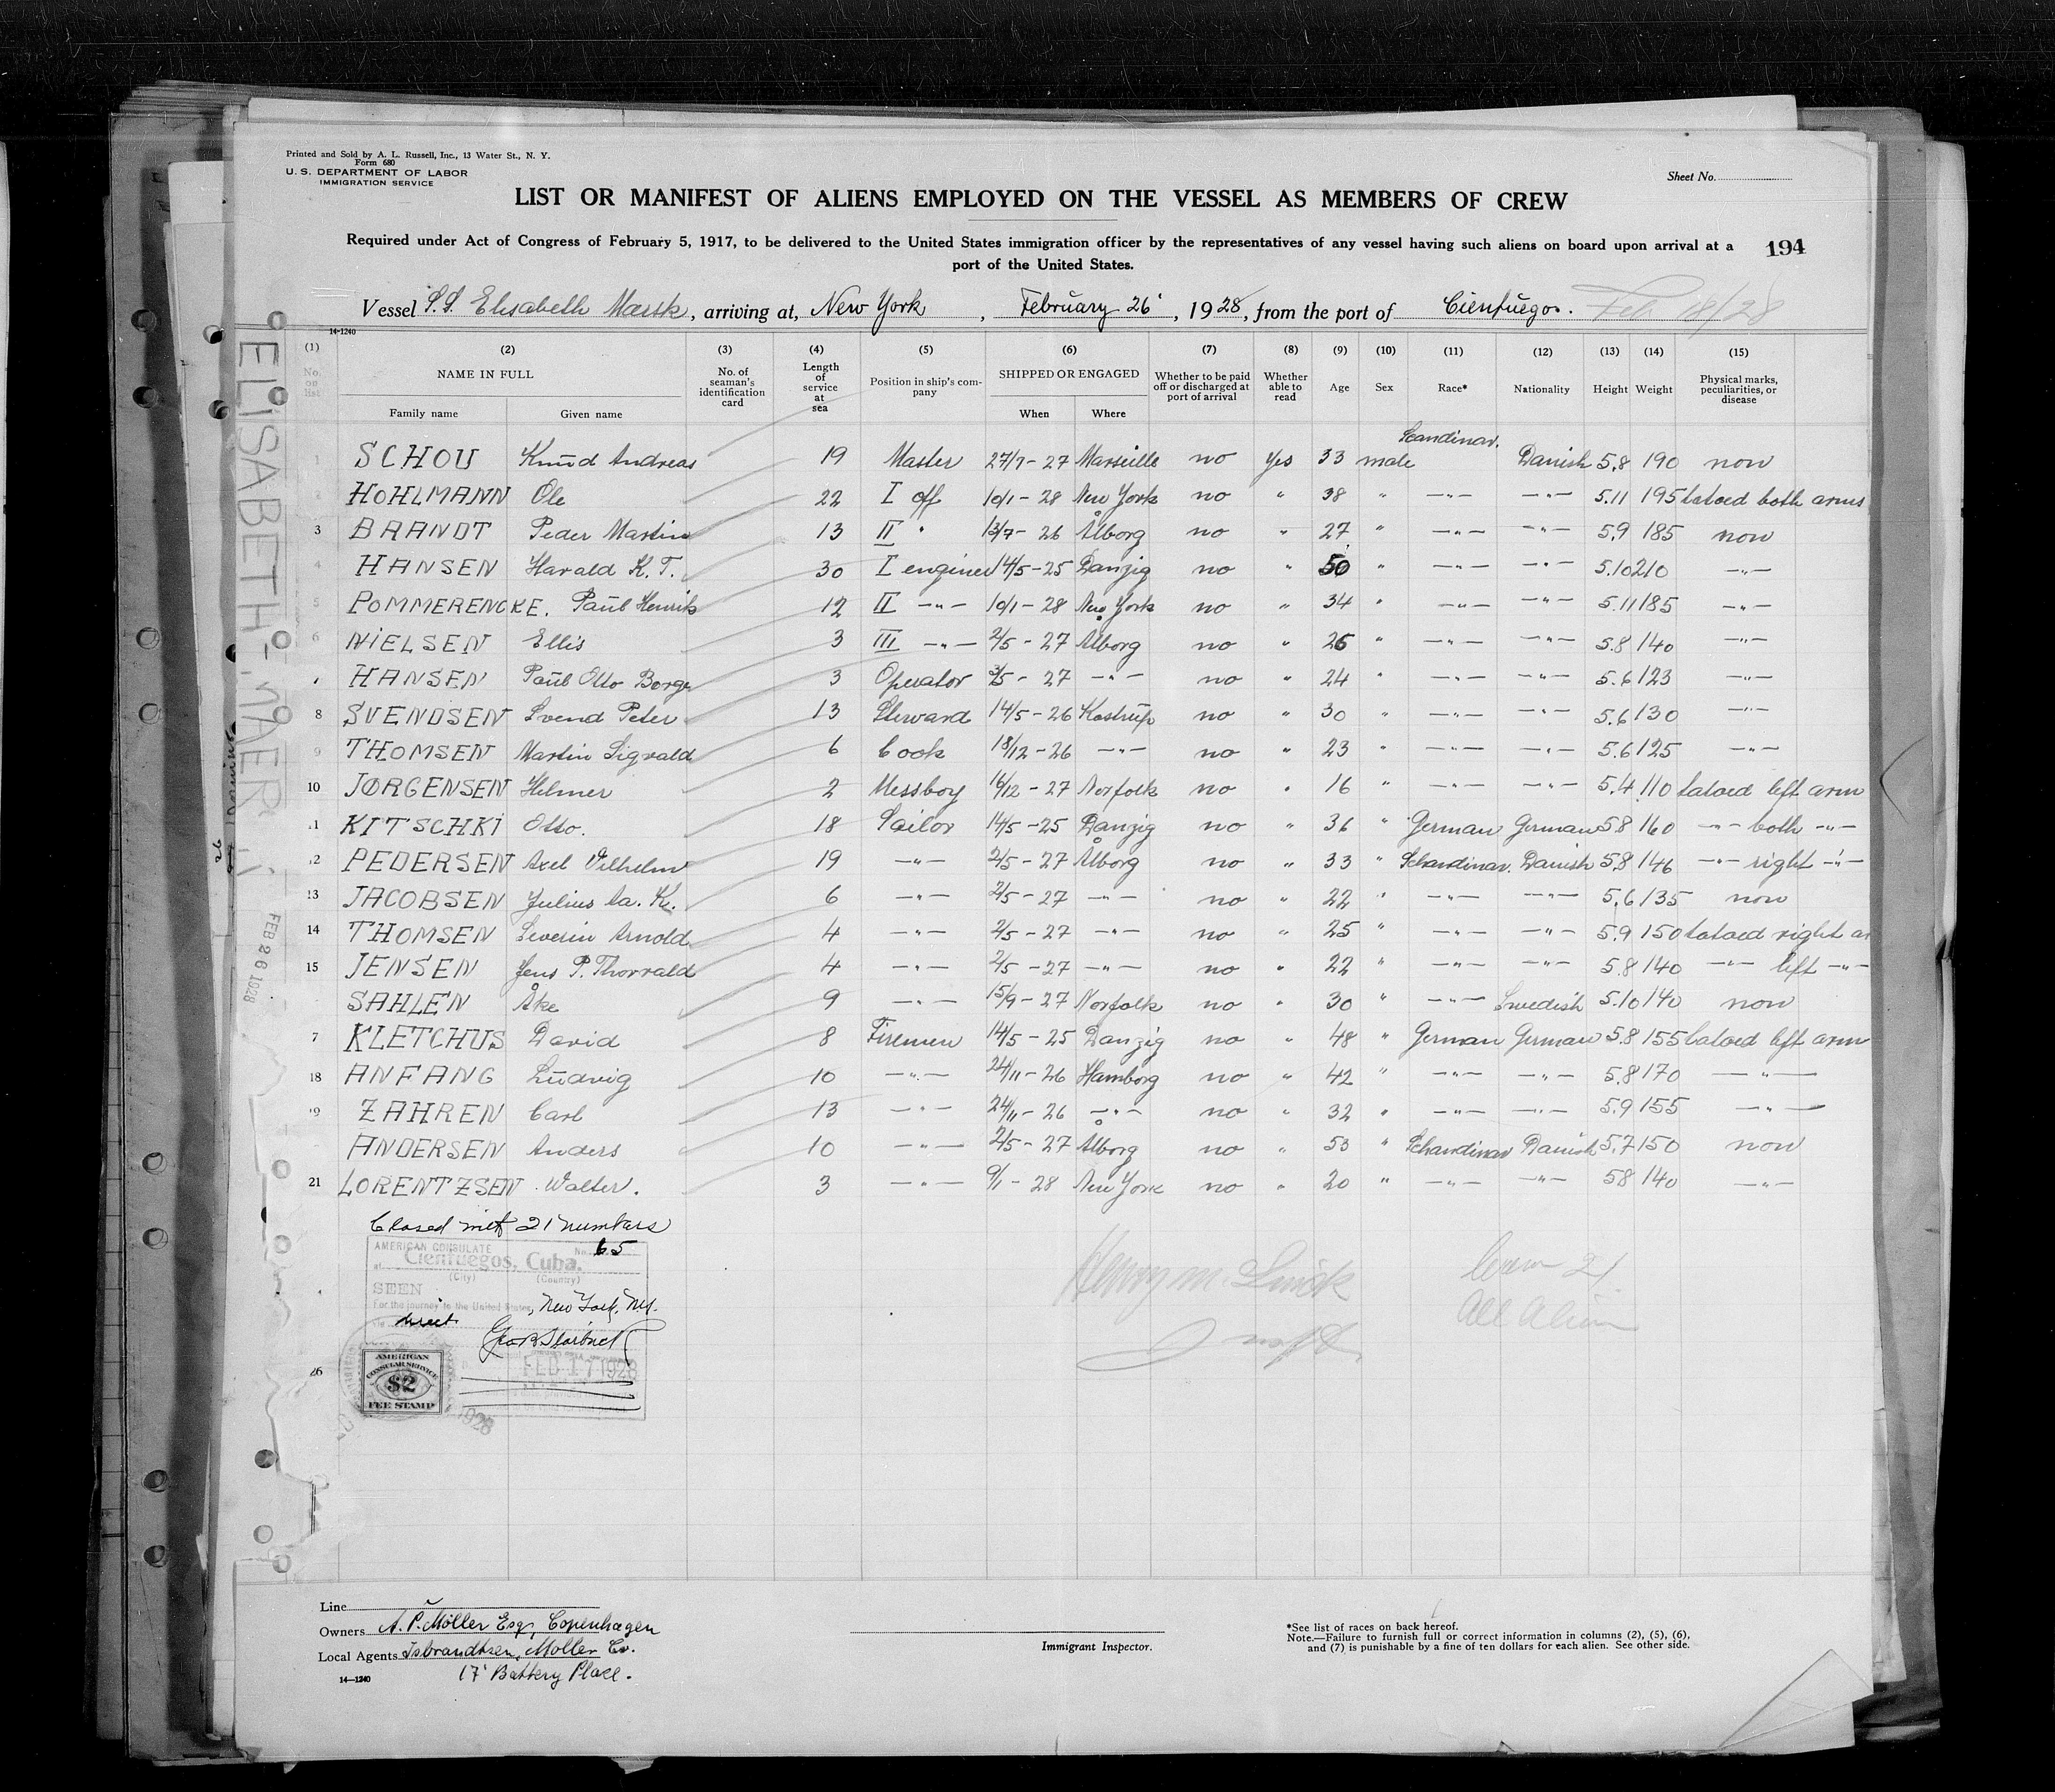 Printed and Sold by A. L. Russell, Inc., 13 Water St., N. Y.
Form 680
U. S. DEPARTMENT OF LABOR
IMMIGRATION SERVICE
Sheet No.
LIST OR MANIFEST OF ALIENS EMPLOYED ON THE VESSEL AS MEMBERS OF CREW
Required under Act of Congress of February 5, 1917, to be delivered to the United States immigration officer by the representatives of any vessel having such aliens on board upon arrival at a port of the United States.
194
Vessel S.S. Elisabeth Mærsk, arriving at, New York, February 26', 1928, from the port of Cienfuegos. Feb 18/28
14-1240
(1) (2) (3) (4) (5) (6) (7) (8) (9) (10) (11) (12) (13) (14) (15)
No. on list NAME IN FULL No. of seaman's identification card Length of service at sea Position in ship's company SHIPPED OR ENGAGED Whether to be paid off or discharged at port of arrival Whether able to read Age Sex Race* Nationality Height Weight Physical marks, peculiarities, or disease
Family name Given name When Where
1 SCHOU Knud Andreas 19 Master 27/7-27 Marseille no yes 33 male Scandinav. Danish 5.8 190 now
2 HOHLMANN Ole 22 I off 10/1-28 New York no " 38 " -"- -"- 5.11 195 tatoed both arms
3 BRANDT Peder Martin 13 II " 13/7-26 Ålborg no " 27 " -"- -"- 5.9 185 now
4 HANSEN Harald K. T. 30 I engineer 14/5-25 Danzig no " 50 " -"- -"- 5.10 210 -"-
5 POMMERENCKE. Paul Henrik 12 II -"- 10/1-28 New York no " 34 " -"- -"- 5.11 185 -"-
6 NIELSEN Ellis 3 III -"- 2/5-27 Ålborg no " 26 " -"- -"- 5.8 140 -"-
HANSEN Paul Otto Borge 3 Operator 3/5-27 -"- no " 24 " -"- -"- 5.6 123 -"-
8 SVENDSEN Svend Peter 13 Steward 14/5-26 Kastrup no " 30 " -"- -"- 5.6 130 -"-
9 THOMSEN Martin Sigvald 6 Cook 18/12-26 -"- no " 23 " -"- -"- 5.6 125 -"-
10 JØRGENSEN Helmer 2 Messboy 16/12-27 Norfolk no " 16 " -"- -"- 5.4 110 tatoed left arm
11 KITSCHKI Otto. 18 Sailor 14/5-25 Danzig no " 36 " German German 5.8 160 -"- both -"-
12 PEDERSEN Axel Vilhelm 19 -"- 2/5-27 Ålborg no " 33 " Schandinav. Danish 5.8 146 -"- right -"-
13 JACOBSEN Julius Aa. K. 6 -"- 2/5-27 -"- no " 22 " -"- -"- 5.6 135 now
14 THOMSEN Severin Arnold 4 -"- 2/5-27 -"- no " 25 " -"- -"- 5.9 150 tatoed right ar
15 JENSEN Jens P. Thorvald 4 -"- 2/5-27 -"- no " 22 " -"- -"- 5.8 140 -"- left -"-
SAHLEN Åke 9 -"- 15/9-27 Norfolk no " 30 " -"- Swedish 5.10 140 now
7 KLETCHUS David 8 Firemen 14/5-25 Danzig no " 48 " German German 5.8 155 tatoed left arm
18 ANFANG Ludvig 10 -"- 24/11-26 Hamborg no " 42 " -"- -"- 5.8 170 -"-
19 ZAHREN Carl 13 -"- 24/11-26 -"- no " 32 " -"- -"- 5.9 155 -"-
ANDERSEN Anders 10 -"- 2/5-27 Ålborg no " 53 " Schandinav Danish 5.7 150 now
21 LORENTZSEN Walter. 3 -"- 9/1-28 New York no " 20 " -"- -"- 5.8 140 -"-
Closed with 21 numbers
AMERICAN CONSULATE No. 65
at Cienfuegos, Cuba.
(City) (Country)
SEEN
For the journey to the United States, New York, N.Y.
direct
FEB 17 1928
AMERICAN
CONSULAR SERVICE
$2
FEE STAMP
1928
26
Crew 21
All Alien
ELISABETH-MAERSK
FEB 26 1928
Line
Owners A. P. Möller Esq, Copenhagen
Local Agents Isbrandtsen, Moller Co.
17 Battery Place.
14-1240
Immigrant Inspector.
*See list of races on back hereof.
Note.—Failure to furnish full or correct information in columns (2), (5), (6), and (7) is punishable by a fine of ten dollars for each alien. See other side.